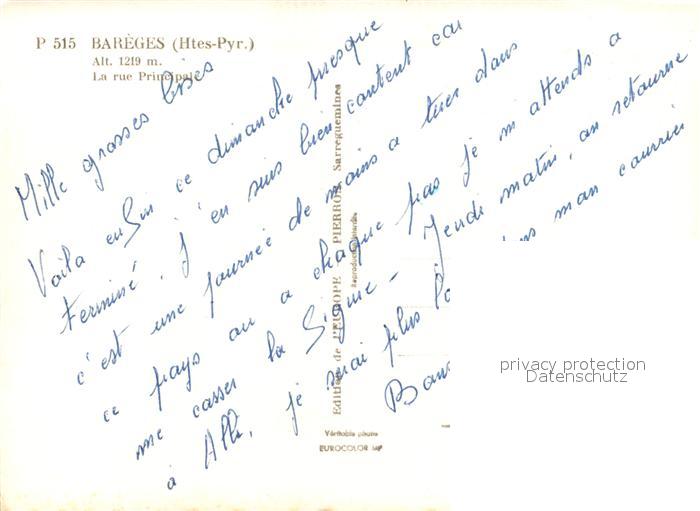 P 515 BARÈGES (Htes-Pyr.)
Alt. 1219 m.
La rue Principale
Mille grosses bises
Voila enfin ce dimanche presque
terminé. J'en suis bien content car
c'est une journée de moins a tuer dans
ce pays ou a chaque pas je m'attends a
me casser la figure - Jeudi matin, on retourne
à je serai plus mon courrier
Editions de l'EUROPE - PIERRON - Sarreguemines
Reproductions interdites
Véritable photo
EUROCOLOR MP
privacy protection
Datenschutz